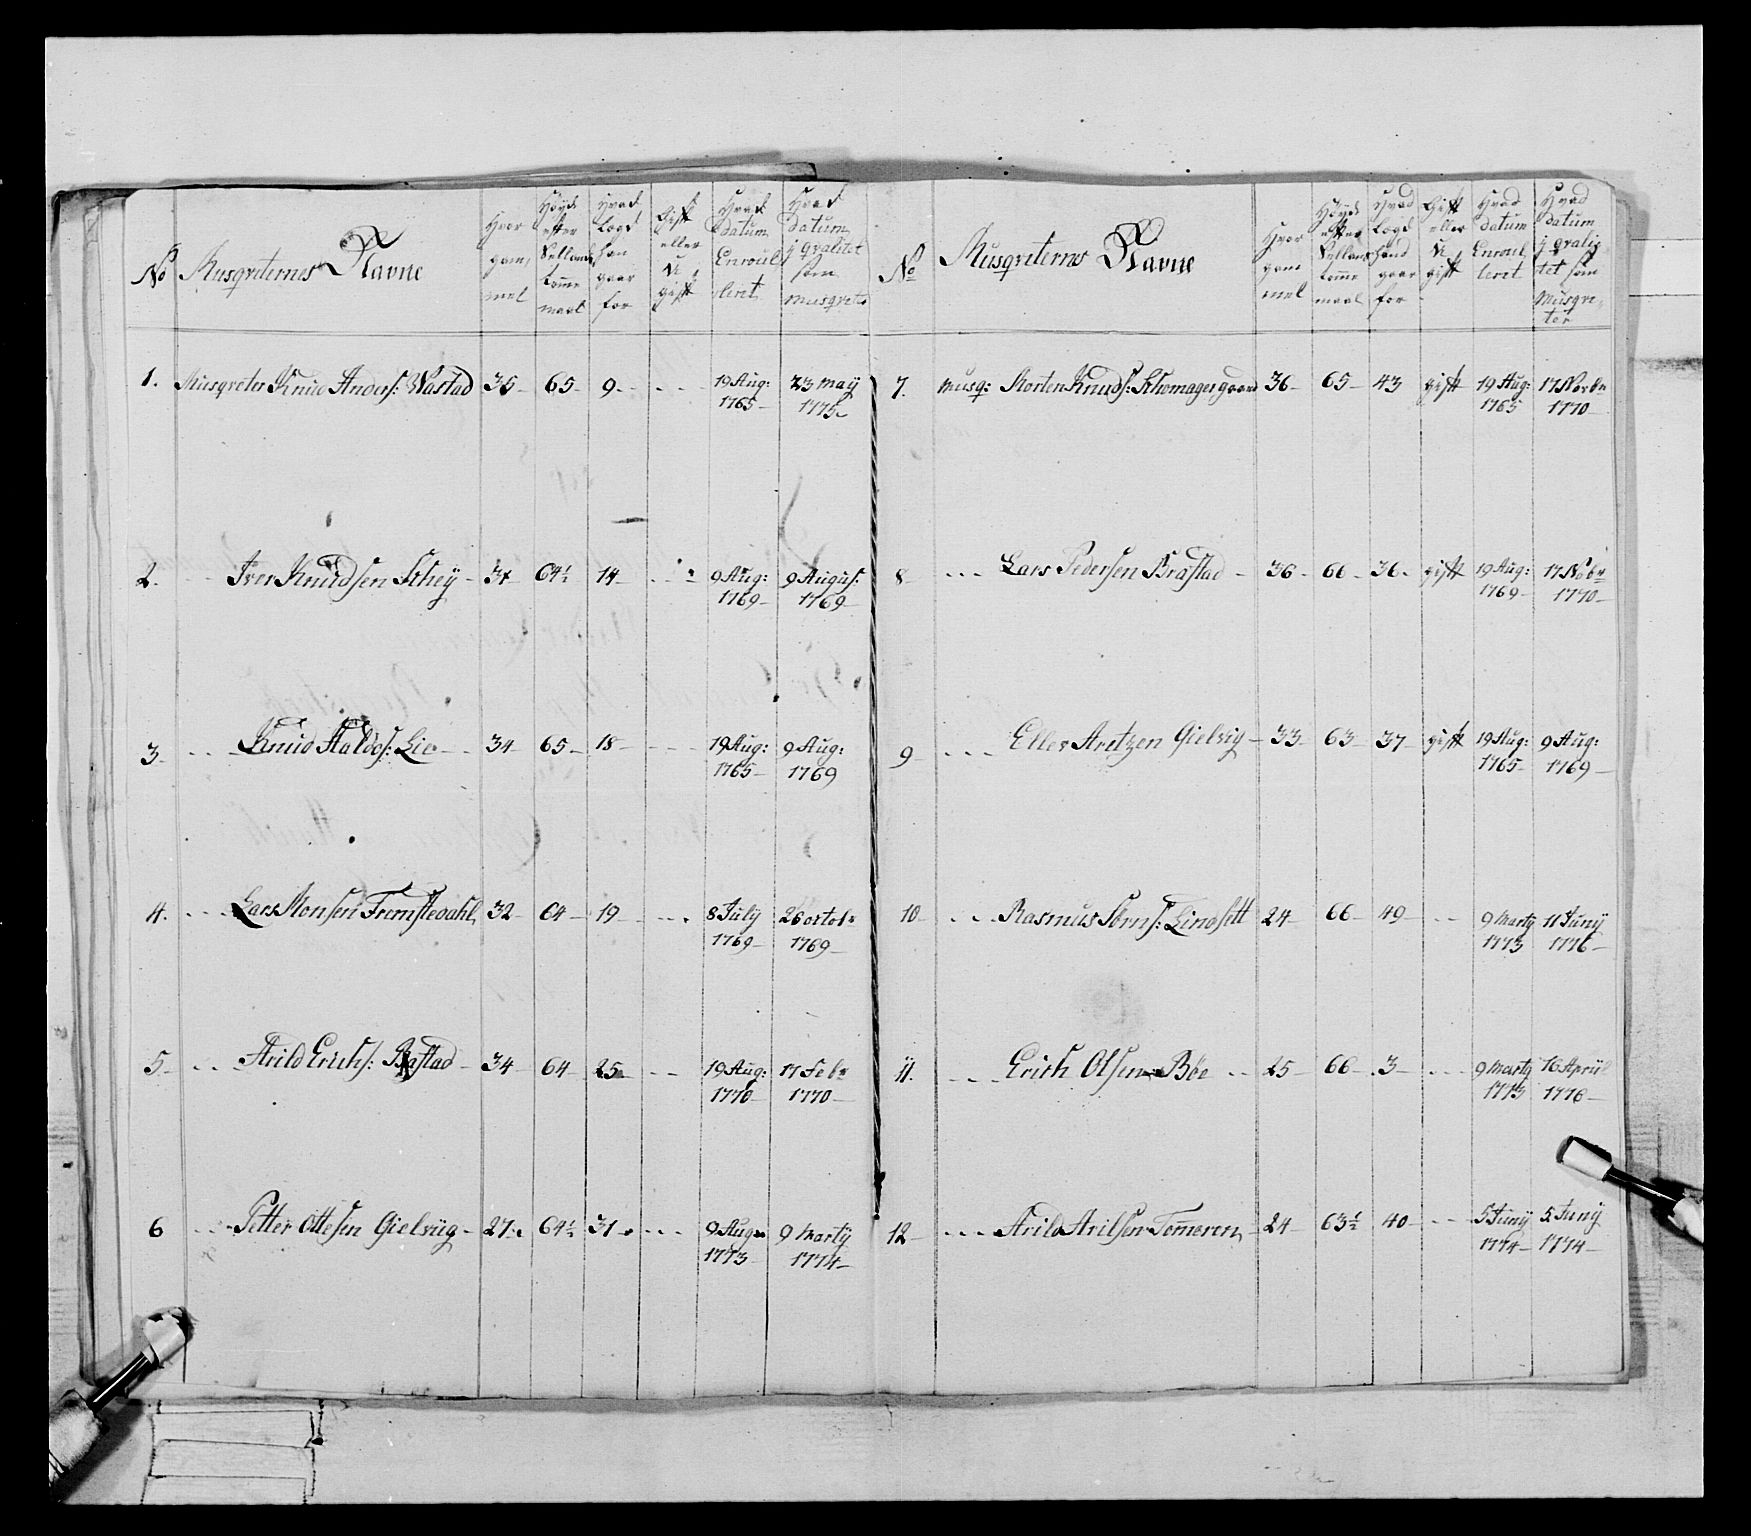 No Musqveternes Navne Hvor gam, mel Høyde efter Sellands tomme maal Hvad Logd han gaar for Gift eller U gift Hvad datum Enroul leret Hvad datum j qvalitet som musqveter
1. Musqveter Knud Anders: Wastad 35 65 9 - - - 19 Aug: 1765 23 may 1775
2. - - Iver Knudsen Schey 34 64½ 14 - - - 9 Aug: 1769 9 Augus: 1769
3. - - Knud Halvs: Lie 34 65 18 - - - 19 Aug: 1765 9 Aug: 1769
4. - - - Lars Monsen Fremstedahl 32 64 19 - - - 8 July 1769 26 octobr 1769
5. - - Arild Erichs: Bastad 34 64 25 - - 19 Aug: 1770 17 Febr 1770
6 - - Petter Ottesen Gielviig 27 64½ 31 - - - 9 Aug 1773 9 Marty 1774
No Musqveternes Navne Hvor gam mel Høyde efter Sellands tomme maal Hvad Logd hand gaar for Gift eller U gift Hvad datum Enroul leret Hvad datum j qvalig tet som Musqve, ter
7. Musq: Morten Knuds: Schomagergaard 36 65 43 gift 19 Aug: 1765 17 Novbr 1770
8 - - - Lars Pedersen Brastad 36 66 36 gift 19 Aug: 1769 17 Nobr 1770
9 - - - Eller Aretzen Gielvig 33 63 37 gift 19 Aug: 1765 9 Aug: 1769
10 - - - Rasmus Sørns: Lindsett 24 66 49 - - 9 Marty 1773 11 Juny 1776
11. - - - Erich Olsen Bøe 25 66 3 - - - 9 Marty 1773 16 Apriil 1776
12 - - - Arild Arilsen Tomeren 24 63½ 40 - - - 5 Juny 1774 5 Juny 1774